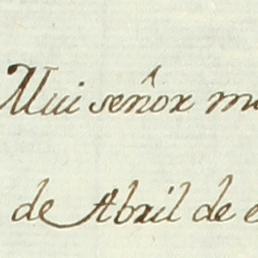 Mui señor m
de Abril de e